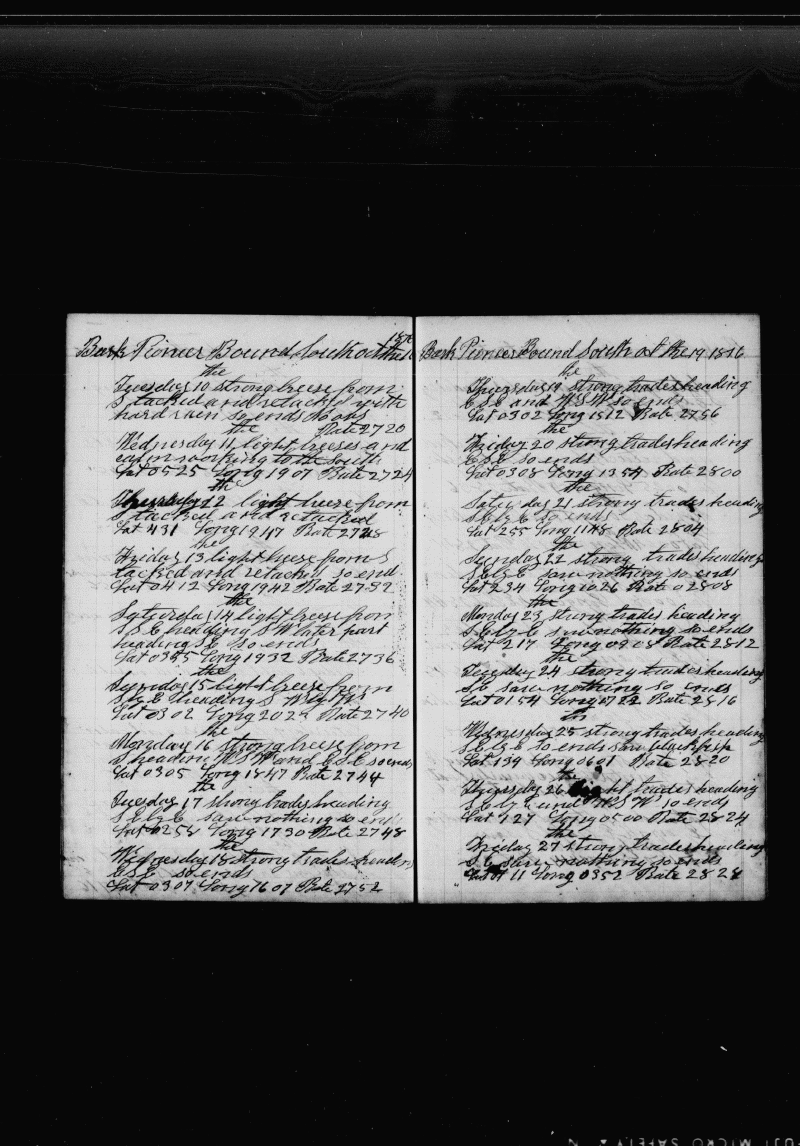 187
Bark Pioneer Bound South at the 10
the
Tuesday 10 strong breese from
S tacked and retackd with
hard rain so ends No obs
the Rate 2720
Wednesday 11 light breeses and
calm working to the South
Lat 0525 Long 1907 Rate 2724
the
Thursday 12 light breese from
S tacked and retacked
Lat 431 Long 1947 Rate 2728
the
Friday 13 light breese from S
tacked and retackd so end
Lat 0412 Long 1942 Rate 2732
the
Saturday 14 light breese from
S S E heading S W later part
heading S E so ends
Lat 0345 Long 1932 Rate 2736
the
Sunday 15 light breese from
S by E heading S W by W
Lat 0302 Long 2022 Rate 2740
the
Monday 16 strong breese from
S heading W S W and E S E so ends
Lat 0305 Long 1847 Rate 2744
the
Tuesday 17 strong trades heading
S E by E saw nothing so ends
Lat 0258 Long 1730 Rate 2748
the
Wednesday 18 strong trades heading
E S E so ends
Lat 0307 Long 1607 Rate 2752
Bark Pioneer Bound South at the 19 1876
the
Thursday 19 strong trades heading
E S E and W S W so ends
Lat 0302 Long 1512 Rate 2756
the
Friday 20 strong trades heading
E S E so ends
Lat 0308 Long 1354 Rate 2800
the
Saturday 21 strong trades heading
S E by E so ends
Lat 255 Long 1148 Rate 2804
the
Sunday 22 strong trades heading
S E by E saw nothing so ends
Lat 234 Long 1026 Rate 02808
the
Monday 23 strong trades heading
S E by E saw nothing so ends
Lat 217 Long 0908 Rate 2812
the
Tuesday 24 strong trades heading
S E saw nothing so ends
Lat 0154 Long 0722 Rate 2816
the
Wednesday 25 strong trades heading
S E by E so ends saw blackfish
Lat 139 Long 0601 Rate 2820
the
Thursday 26 light trades heading
S E by E and W S W so ends
Lat 127 Long 0500 Rate 2824
the
Friday 27 strong trades heading
S E saw nothing so ends
Lat 01 11 Long 0352 Rate 2828
FUJI MICRO SAFETY